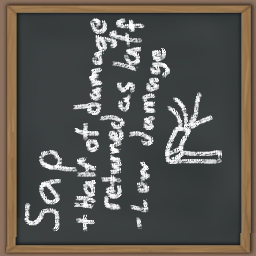 Sap
+ Half of damage
returned as laft
- Low damage